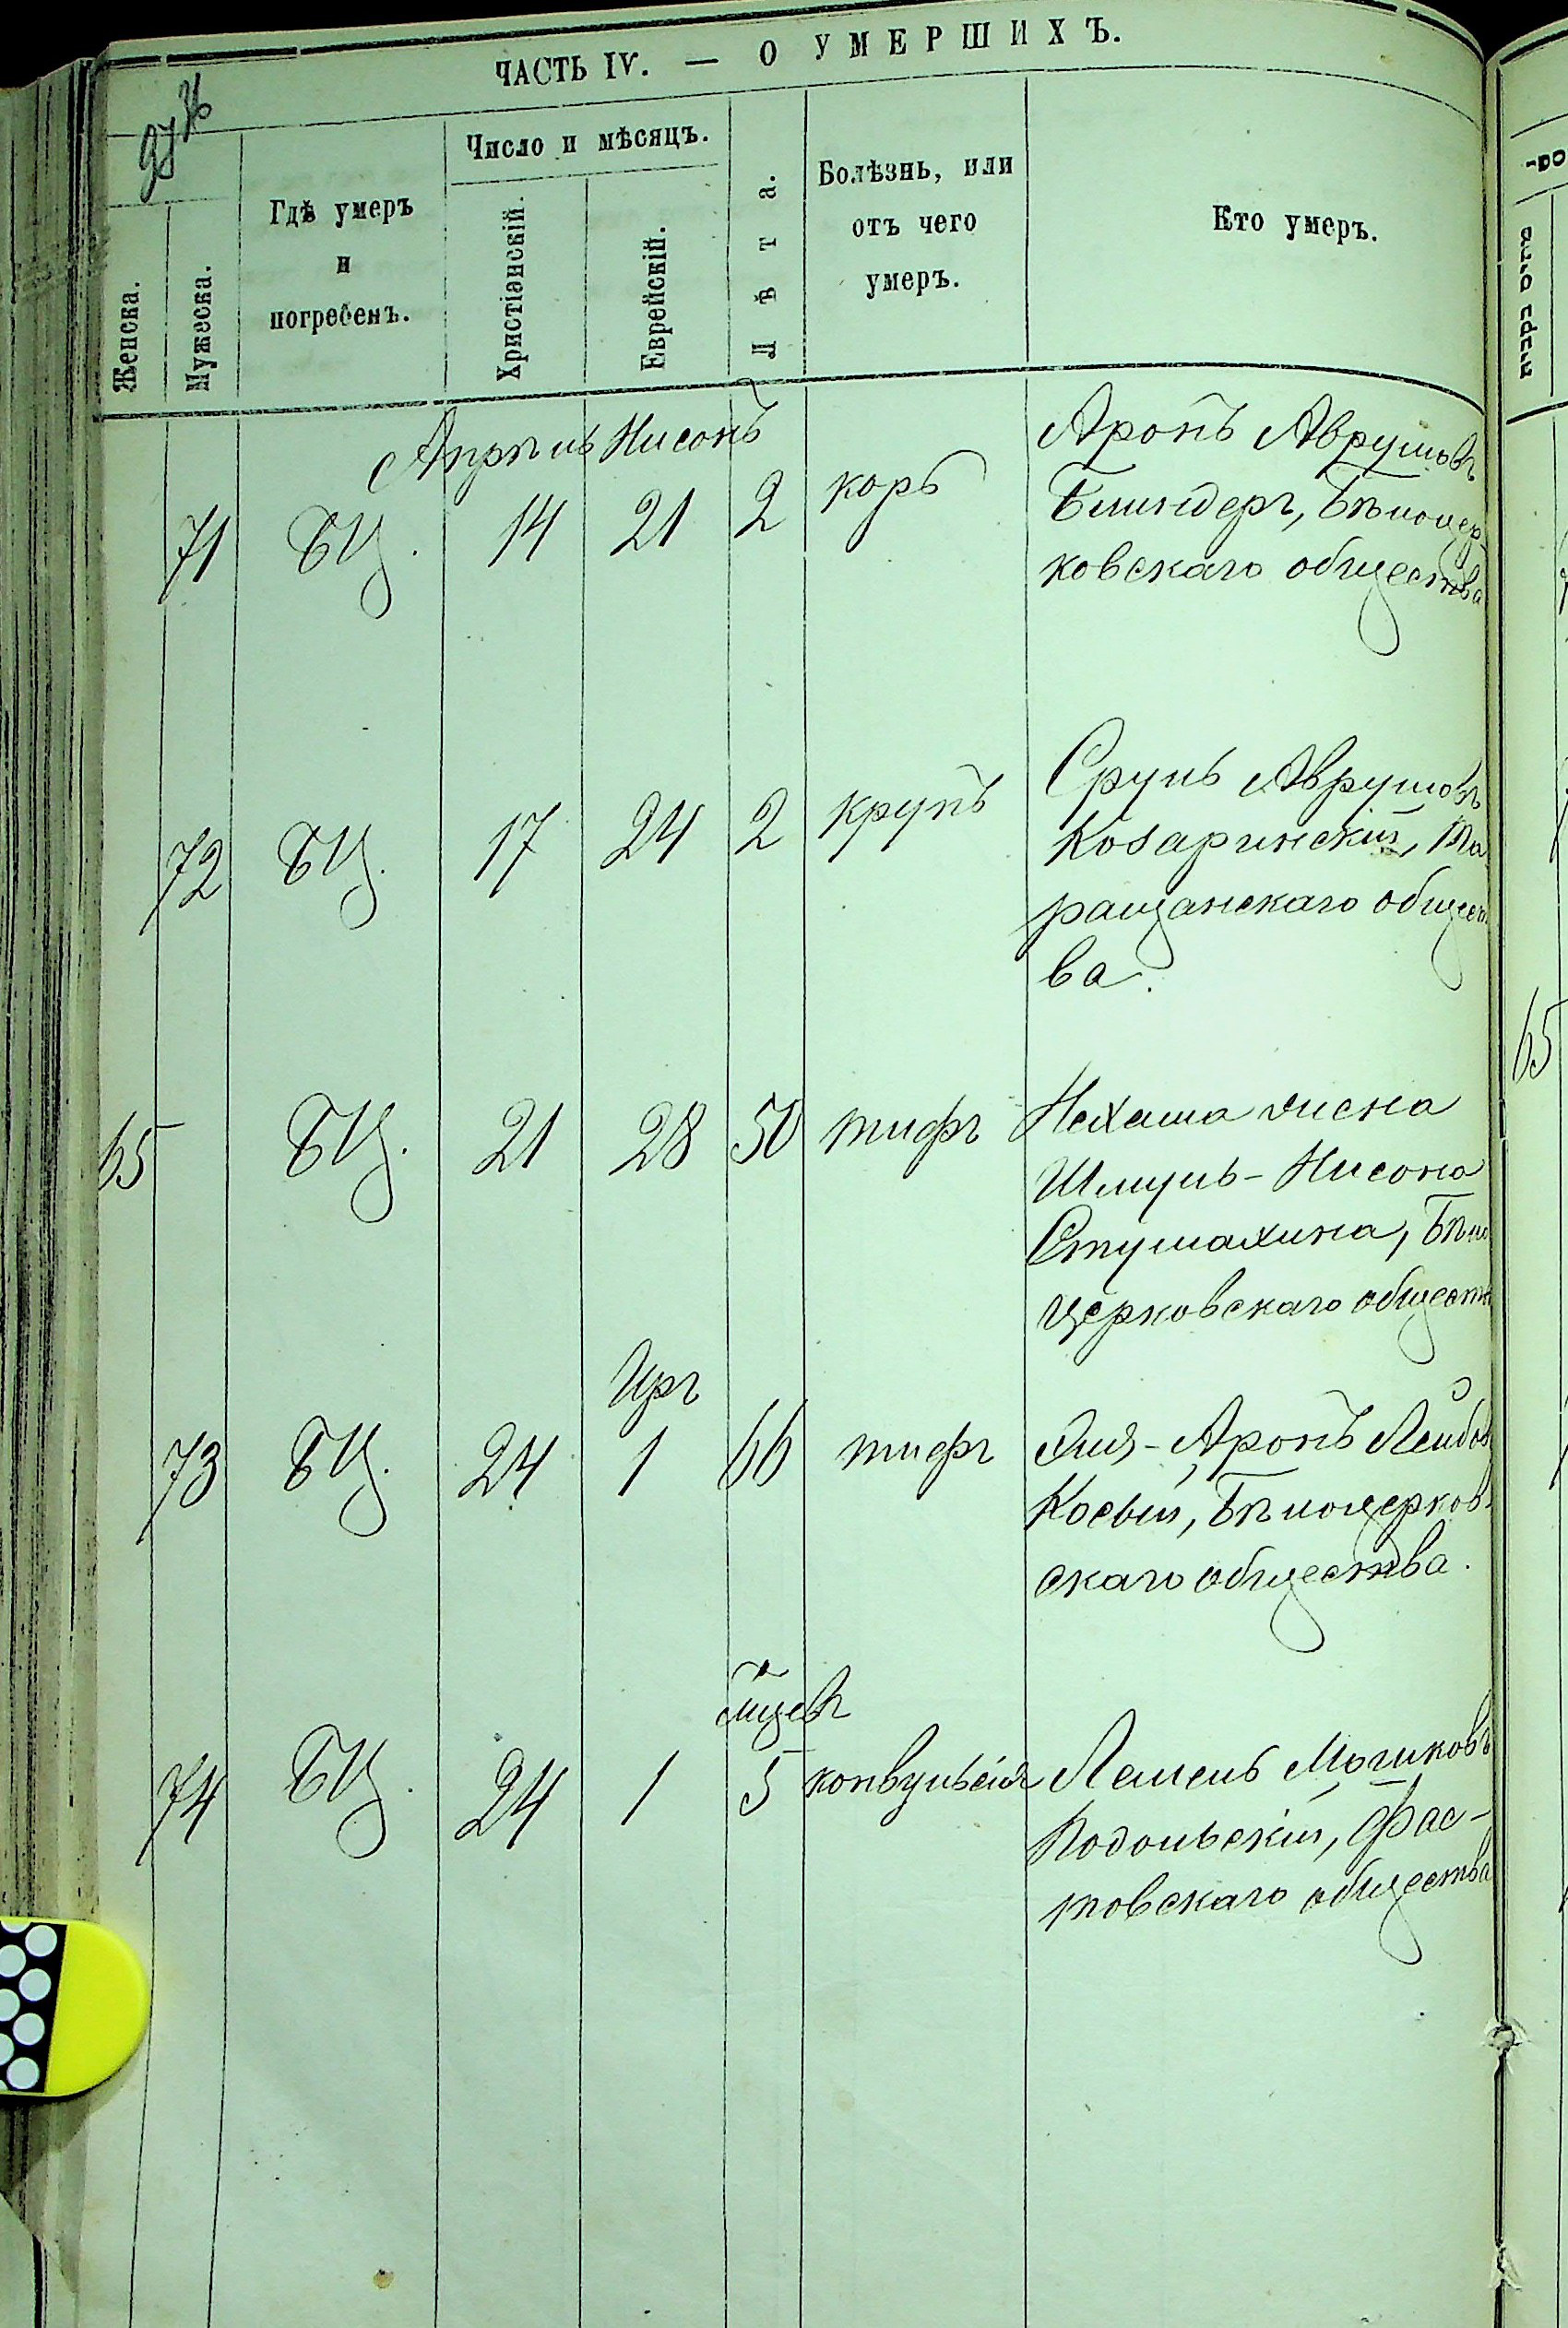 ЧАСТЬ IV. — О УМЕРШИХЪ.
Женска.
Мужеска.
Гдѣ умеръ
и
погребенъ.
Число и мѣсяцъ.
Христіанскій.
Еврейскій.
Лѣта.
Болѣзнь, или
отъ чего
умеръ.
Кто умеръ.
Апрѣль Нисонъ
71 БЦ. 14 21 2 корь
Аронъ Аврумовъ
Блиндеръ, Бѣлоцер
ковскаго общества
72 БЦ. 17 24 2 крупъ
Сруль Аврумовъ
Козаринскій, Та
ращанскаго общест
ва.
65 БЦ. 21 28 50 тифъ
Нехама жена
Шмуль-Нисона
Стумахина, Бѣло
церковскаго обществ
Иръ
73 БЦ. 24 1 66 тифъ
Эля-Аронъ Лейбов
Косый, Бѣлоцерков-
скаго общества.
мцевъ
74 БЦ. 24 1 5 конвульсія
Лемель Мошковъ
Подольскій, Фас-
товскаго общества
65